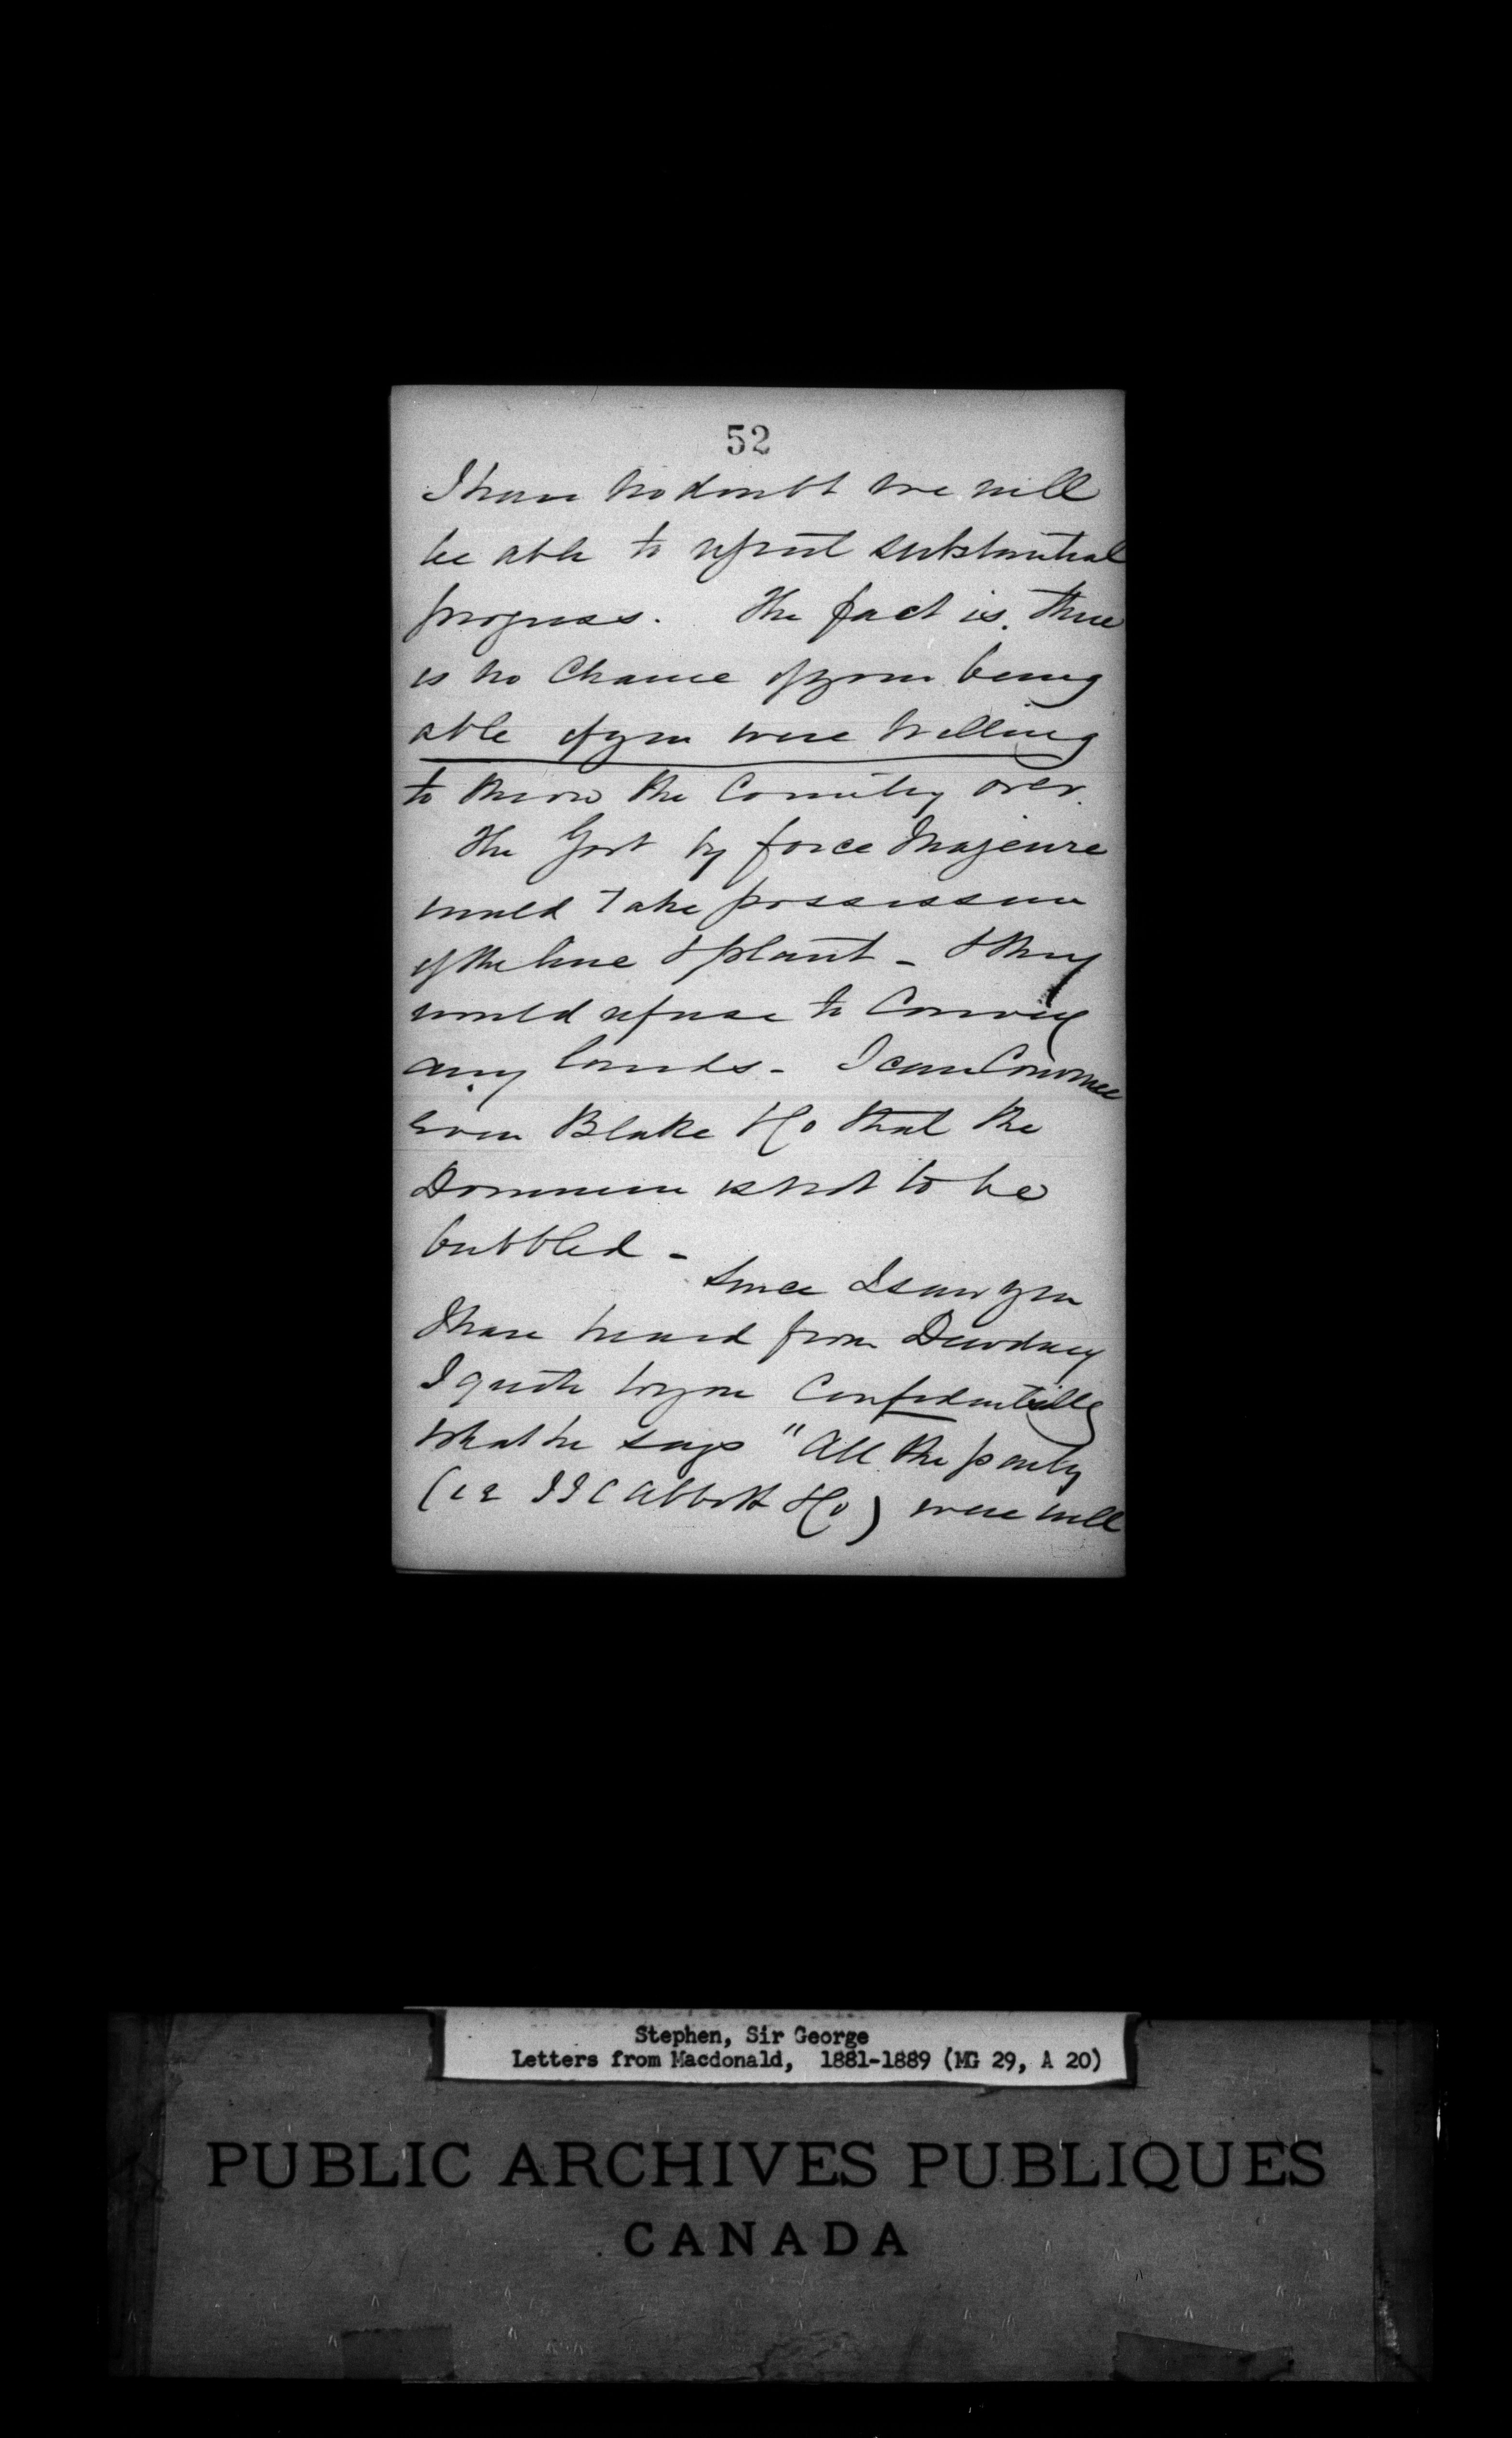 52
I have no doubt we will
be able to report substantial
progress. The fact is. there
is no chance of your being
able if you were willing
to throw the Country over.
The Govt by force Majeure
would take possession
of the line & plant - & they
would refuse to Convey
any lands - I can Convince
even Blake & Co that the
Dominion is not to be
bubbled -
Since I saw you
I have heard from Dewdney
I quote to you Confidentially
What he says "All the party
(i e J J C Abbott & Co) were well
Stephen, Sir George
Letters from Macdonald, 1881-1889 (MG 29, A 20)
PUBLIC ARCHIVES PUBLIQUES
CANADA